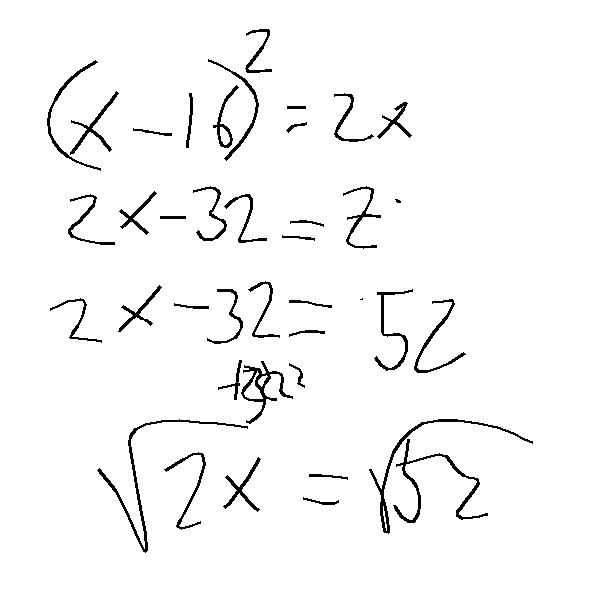 (x-16)² = 2x
2x-32 = z
2x-32 = 52
√2x = √52